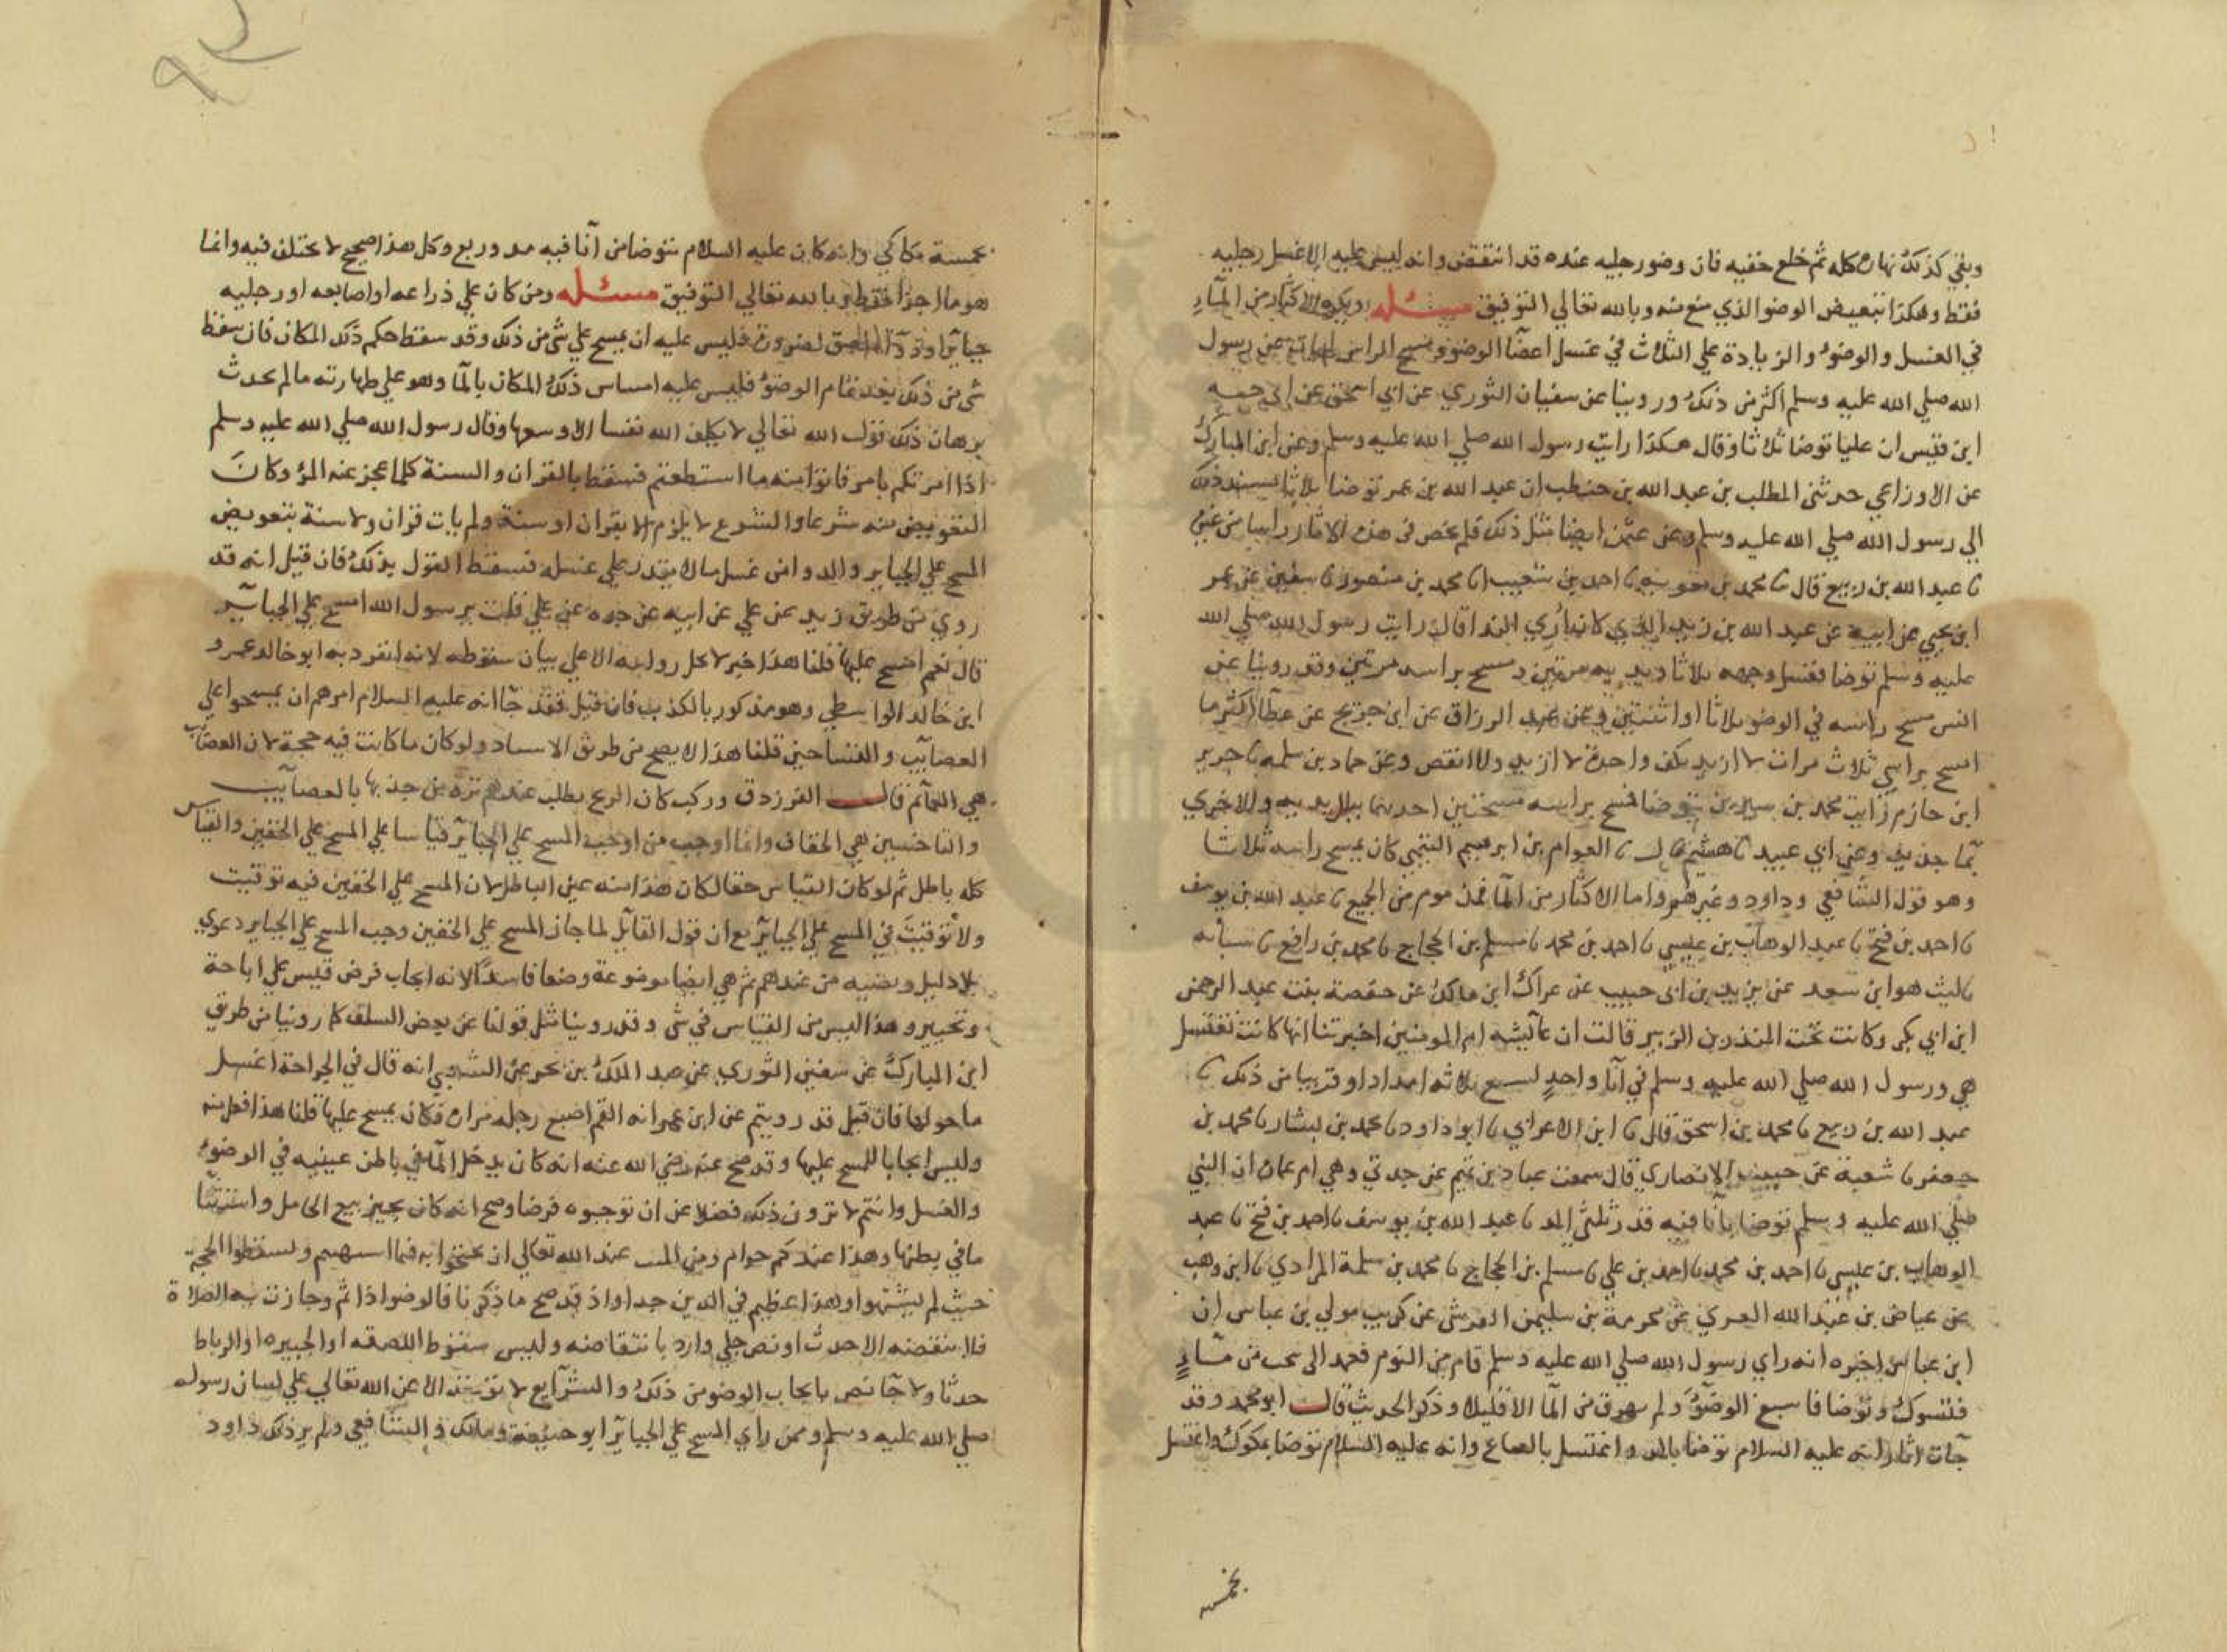 وبقي كذلك نهاره كله ثم خلع خفيه فان وضو رجليه عنده قد انتقض وانه ليس عليه الا غسل رجليه
فقط وهكذا تبعيض الوضو الذي منع منه وبالله تعالي التوفيق مسئله ويكره الاكثار من المآء
في الغسل والوضوء والزيادة علي الثلاث في غسل اعضآ الوضو ومسح الراس لانه لم يات عن رسول
الله صلي الله عليه وسلم اكثر من ذلك وروينا عن سفيان الثوري عن ابي اسحق عن ابي حيه
ابن قيس ان عليا توضا ثلاثا وقال هكذا رايت رسول الله صلي الله عليه وسلم وعن ابن المبارك
عن الاوزاعي حدثني المطلب بن عبد الله بن حنطب ان عبد الله بن عمر توضا ثلاثا يسند ذلك
الي رسول الله صلي الله عليه وسلم وعن عثمن ايضا مثل ذلك فلم يخص في هذه الاثار راسا من غيره
نا عبد الله بن ربيع قال نا محمد بن معويه نا احمد بن شعيب انا محمد بن منصور نا سفين عن عمر
ابن يحيي عن ابيه عن عبد الله بن زيد الذي كان اري الندا قال رايت رسول الله صلي الله
عليه وسلم توضا فغسل وجهه ثلاثا ويديه مرتين ومسح براسه مرتين وقد روينا عن
انس مسح راسه في الوضو ثلاثا او اثنتين وعن عبد الرزاق عن ابن جريج عن عطآ اكثر ما
امسح براسي ثلاث مرات لا ازيد بكف واحدة لا ازيد ولا انقص وعن حماد بن سلمه نا جرير
ابن حازم رايت محمد بن سيرين توضا فمسح براسه مسحتين احدهما ببلل يديه والاخري
بمآ جديد وعن ابي عبيد نا هشيم قال نا العوام بن ابرهيم التيمي كان يمسح راسه ثلاثا
وهو قول الشافعي وداود وغيرهم واما الاكثار من المآ فمذموم من الجميع نا عبد الله بن يوسف
نا احمد بن فتح نا عبد الوهاب بن عيسي نا احمد بن محمد نا مسلم بن الحجاج نا محمد بن رافع نا شبابه
نا ليث هو ابن سعد عن يزيد بن ابي حبيب عن عراك ابن مالك عن حفصة بنت عبد الرحمن
ابن ابي بكر وكانت تحت المنذر بن الزبير قالت ان عآيشه ام المومنين اخبرتنا انها كانت تغتسل
هي ورسول الله صلي الله عليه وسلم في انآ واحد لسع ثلاثه امداد او قريبا من ذلك نا
عبد الله بن ربيع نا محمد بن اسحق قال نا ابن الاعرابي نا ابو داود نا محمد بن بشار نا محمد بن
جعفر نا شعبة عن حبيب الانصاري قال سمعت عباد بن تميم عن جدتي وهي ام عمان ان النبي
صلي الله عليه وسلم توضا بانا فيه قدر ثلثي المد نا عبد الله بن يوسف نا احمد بن فتح نا عبد
الوهاب بن عيسي نا احمد بن محمد نا احمد بن علي نا مسلم بن الحجاج نا محمد بن سلمة المرادي نا ابن وهب
عن عياض بن عبد الله العمري عن مخرمة بن سليمن القرشي عن كريب مولي بن عباس ان
ابن عباس اخبره انه راي رسول الله صلي الله عليه وسلم قام من النوم فعمد الي شجب من مآء
فتسوك وتوضا فاسبغ الوضوء ولم يهرق من المآ الا قليلا وذكر الحديث قالــــ ابو محمد وقد
جآت اثار انه عليه السلام توضا بالمد واغتسل بالصاع وانه عليه السلام توضا بمكوك واغتسل
بخمسة
بخمسة مكاكي وانه كان عليه السلام يتوضا من انآ فيه مد وربع وكل هذا صحيح لا يختلف فيه وانما
هو ما اجزا فقط وبالله تعالي التوفيق مسئله ومن كان علي ذراعه او اصابعه او رجليه
جبائر او دوآ ملصق لضرورة فليس عليه ان يمسح علي شي من ذلك وقد سقط حكم ذلك المكان فان سقط
شي من ذلك بعد تمام الوضوء فليس عليه امساس ذلك المكان بالمآ وهو علي طهارته مالم يحدث
برهان ذلك قول الله تعالي لا يكلف الله نفسا الا وسعها وقال رسول الله صلي الله عليه وسلم
اذا امرتكم بامر فاتوا منه ما استطعتم فسقط بالقران والسنة كلما عجز عنه المرؤ وكان
التعويض منه شرعا والشرع لا يلزم الا بقران او سنة ولم يات قران ولا سنة بتعويض
المسح علي الجباير والدوا من غسل ما لا يقدر علي غسله فسقط القول بذلك فان قيل انه قد
روي من طريق زيد عن علي عن ابيه عن جده عن علي قلت يرسول الله امسح علي الجبآير
قال نعم امسح عليها قلنا هذا خبر لا يحل روايته الا علي بيان سقوطه لانه انفرد به ابو خالد عمرو
ابن خالد الواسطي وهو مذكور بالكذب فان قيل فقد جآ انه عليه السلام امرهم ان يمسحوا علي
العصآيب والتساخين قلنا هذا لا يصح من طريق الاسناد ولو كان ما كانت فيه حجة لان العصآيب
هي العمآئم قالــــ الفرزدق وركب كان الريح يطلب عندهم ترة من جذبها بالعصآيب
والتاخسين هي الخفاف وانما اوجب من اوجب المسح علي الجبآئر قياسا علي المسح علي الخفين والقياس
كله باطل ثم لو كان القياس حقا لكان هذا منه عين الباطل لان المسح علي الخفين فيه توقيت
ولا توقيت في المسح علي الجبآئر مع ان قول القآئل لما جاز المسح علي الخفين وجب المسح علي الجباير دعوي
بلا دليل وقضيه من عندهم ثم هي ايضا موضوعة وضعا فاسدا لانه ايجاب فرض قيس علي اباحة
وتخيير وهذا ليس من القياس في شي وقد روينا مثل قولنا عن بعض السلف كما روينا من طريق
ابن المبارك عن سفين الثوري عن عبد الملك بن بحر عن الشعبي انه قال في الجراحة اغسل
ما حولها فان قيل قد رويتم عن ابن عمر انه القم اصبع رجله مرارة فكان يمسح عليها قلنا هذا فعل منه
وليس ايجابا للمسح عليها وقد صح عنه رضي الله عنه انه كان يدخل المآ في باطن عينيه في الوضوء
والغسل وانتم لا ترون ذلك فضلا عن ان توجبوه فرضا وصح انه كان يجيز بيع الحامل واستثنا
ما في بطنها وهذا عندكم حرام ومن المقت عند الله تعالي ان يحتجوا به فيما اشتهيتم وتسقطوا الحجة
حيث لم تشتهوا وهذا عظيم في الدين جدا واذ قد صح ما ذكرنا فالوضو اذا تم وجازت به الصلاة
فلا ينقضه الا حدث او نص جلي وارد بانتقاضه وليس سقوط اللصقه او الجبيره او الرباط
حدثا ولا جآ نص بايجاب الوضو من ذلك والشرآيع لا توخذ الا عن الله تعالي علي لسان رسوله
صلي الله عليه وسلم وممن راي المسح علي الجبآئر ابو حنيفة ومالك والشافعي ولم ير ذلك داود